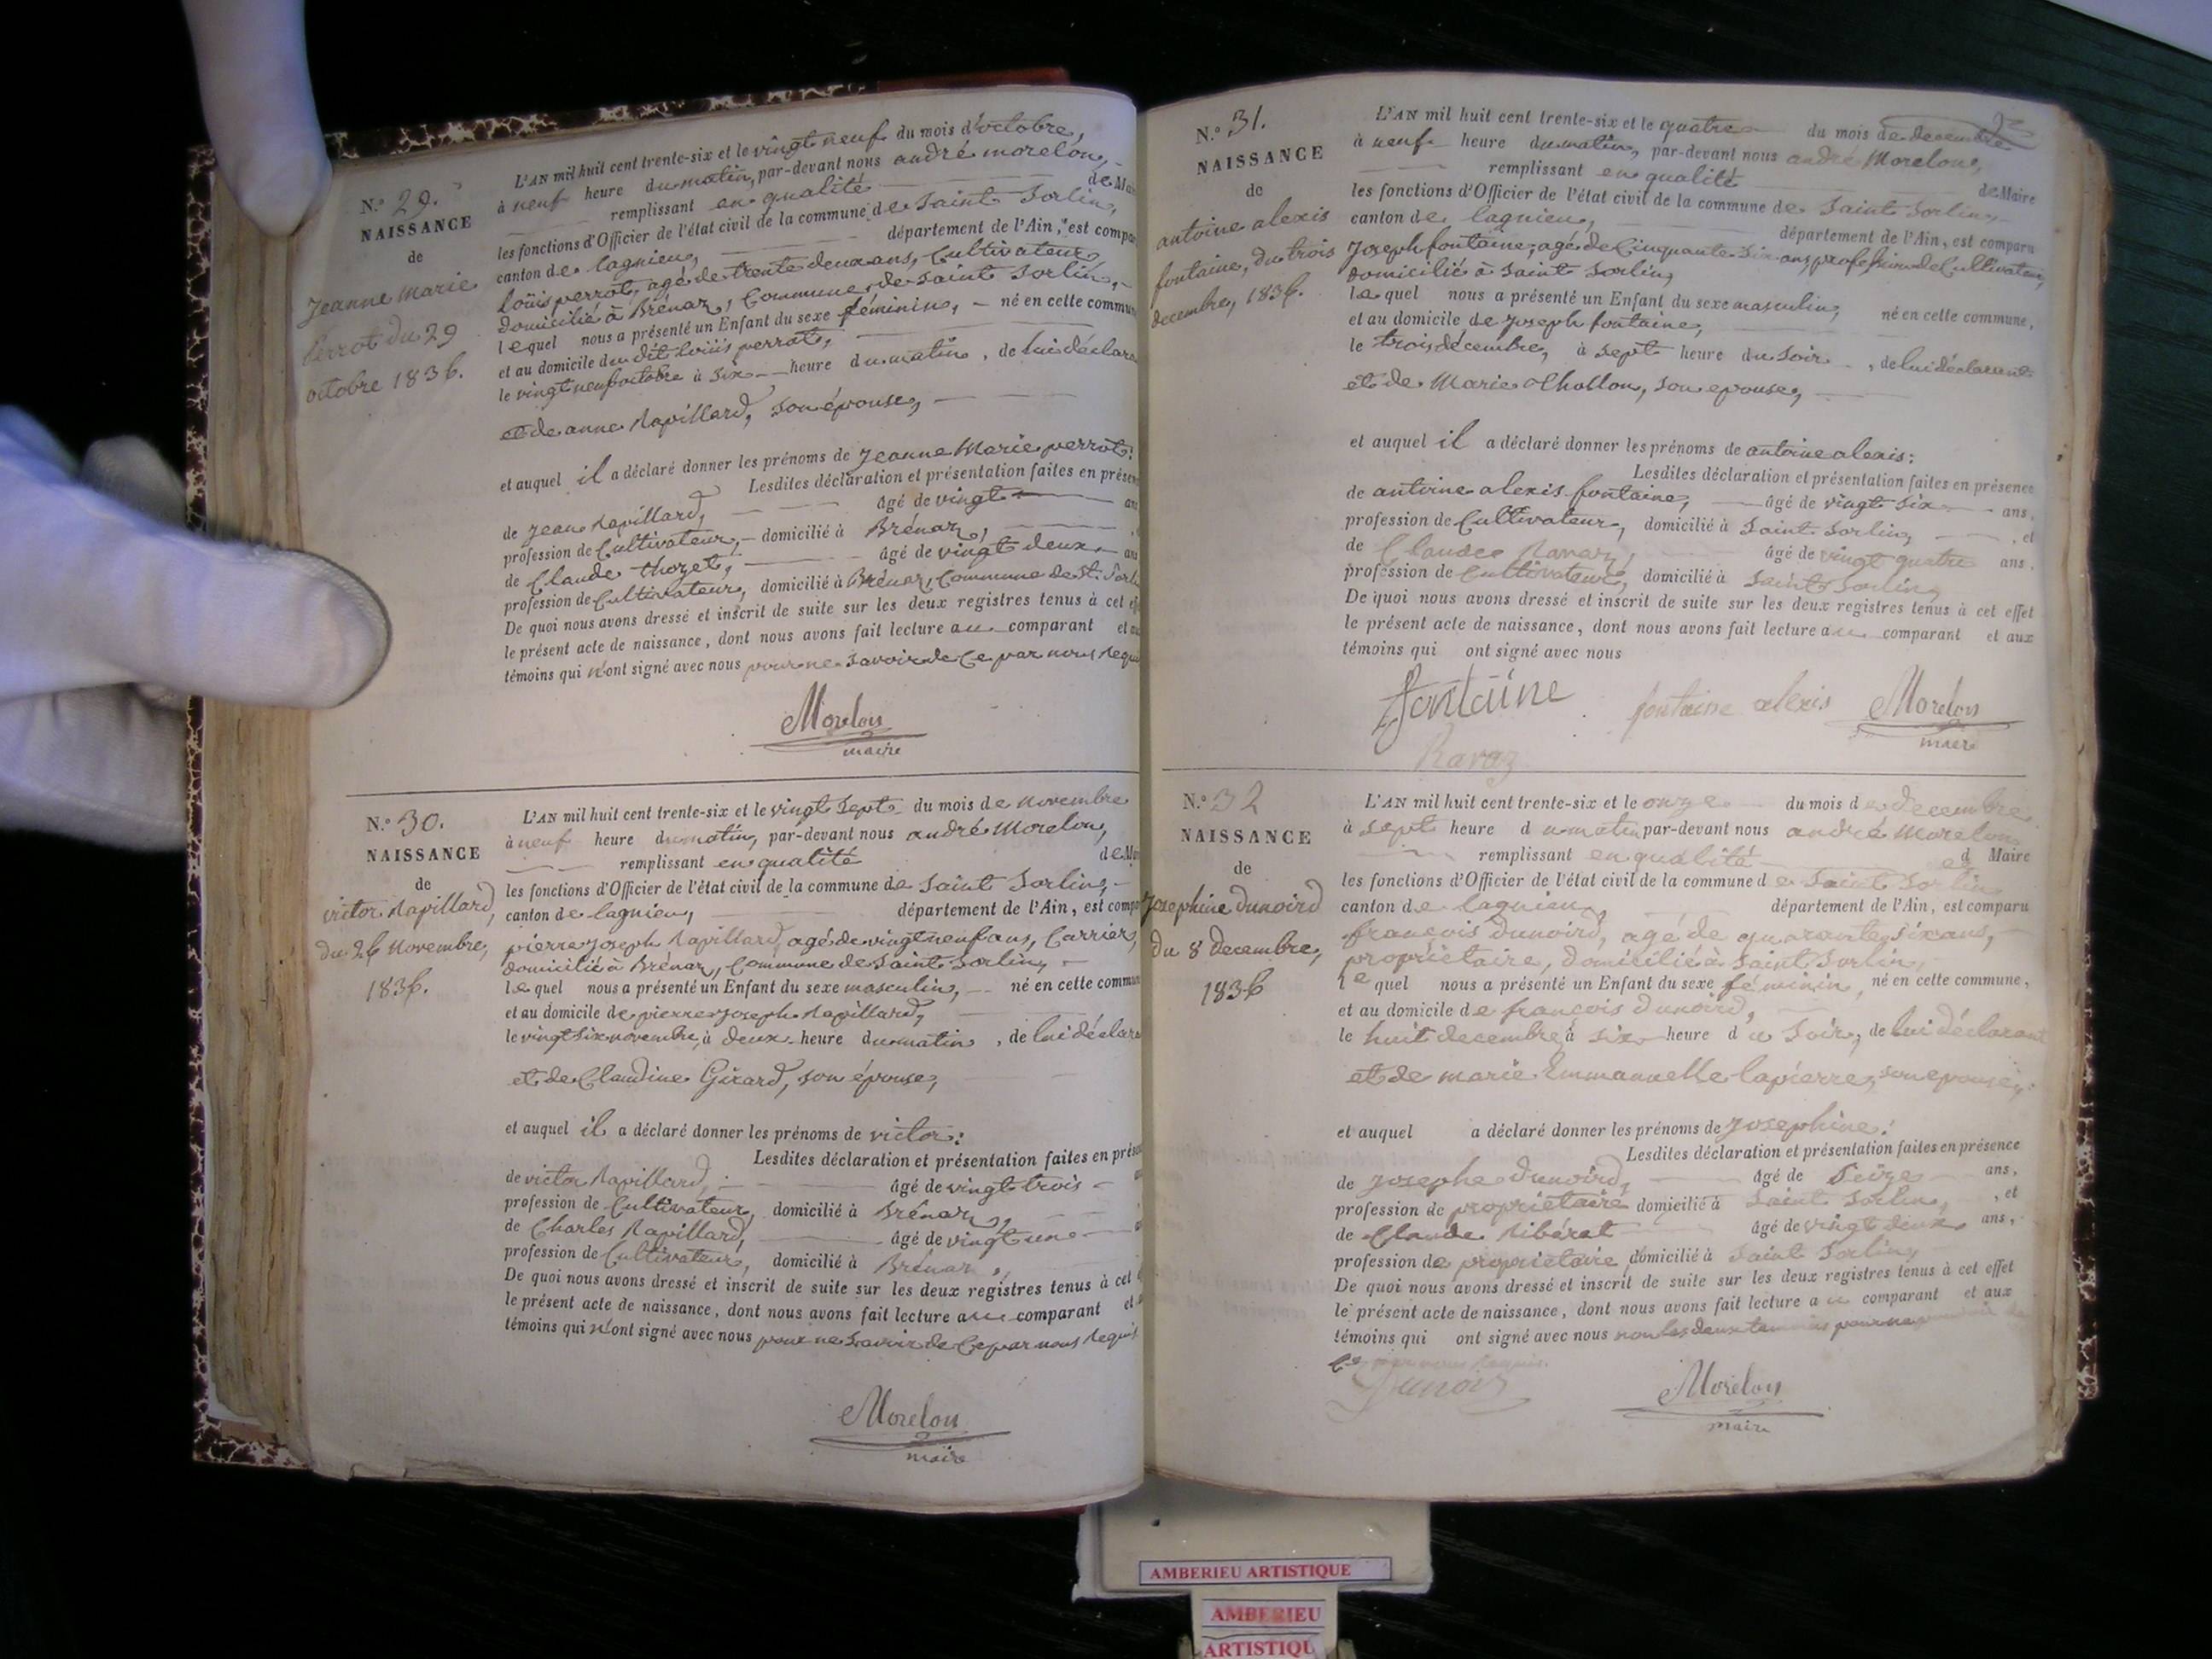 N.º 29.
NAISSANCE
de
Jeanne Marie
Perrot du 29
octobre 1836.
L'AN mil huit cent trente-six et le vingt neuf du mois d'octobre,
à neuf heure du matin, par-devant nous andré morelon,
remplissant en qualité de Mai
les fonctions d'Officier de l'état civil de la commune de Saint Sorlin,
canton de lagnieu, département de l'Ain, est compar
Loüis perrot, agé de trente deux ans, Cultivateur
domicilié à Brénaz, Commune de Saint Sorlin,
lequel nous a présenté un Enfant du sexe féminin, né en cette commun
et au domicile du dit Loüis perrot,
le vingt neuf octobre à six heure du matin, de lui déclara
et de anne Rapillard, son épouse,
et auquel il a déclaré donner les prénoms de Jeanne Marie perrot:
Lesdites déclaration et présentation faites en présen
de Jean Rapillard, âgé de vingt an
profession de Cultivateur, domicilié à Brénaz,
de Claude thozet, âgé de vingt deux an
profession de Cultivateur, domicilié à Brénaz, Commune de St. Sorli
De quoi nous avons dressé et inscrit de suite sur les deux registres tenus à cet eff
le présent acte de naissance, dont nous avons fait lecture au comparant et au
témoins qui n'ont signé avec nous pour ne savoir de ce par nous requi
Morelon
maire
N.º 30.
NAISSANCE
de
victor Rapillard,
du 26 Novembre,
1836.
L'AN mil huit cent trente-six et le vingt sept du mois de novembre
à neuf heure du matin, par-devant nous andré Morelon,
remplissant en qualité de Mai
les fonctions d'Officier de l'état civil de la commune de Saint Sorlin,
canton de lagnieu, département de l'Ain, est compa
pierre joseph Rapillard, agé de vingt neuf ans, Carrier,
domicilié à Brénaz, Commune de Saint Sorlin,
lequel nous a présenté un Enfant du sexe masculin, né en cette commun
et au domicile de pierre joseph Rapillard,
le vingt six novembre, à deux heure du matin, de lui déclara
et de Claudine Girard, son épouse,
et auquel il a déclaré donner les prénoms de victor:
Lesdites déclaration et présentation faites en prése
de victor Rapillard, âgé de vingt trois
profession de Cultivateur, domicilié à Brénaz,
de Charles Rapillard, âgé de vingt une
profession de Cultivateur, domicilié à Brénaz,
De quoi nous avons dressé et inscrit de suite sur les deux registres tenus à cet
le présent acte de naissance, dont nous avons fait lecture au comparant et
témoins qui n'ont signé avec nous pour ne savoir de ce par nous requis
Morelon
maire
N.º 31.
NAISSANCE
de
antoine alexis
fontaine, du trois
decembre, 1836.
L'AN mil huit cent trente-six et le quatre du mois de decembre
à neuf heure du matin, par-devant nous andré Morelon,
remplissant en qualité de Maire
les fonctions d'Officier de l'état civil de la commune de Saint Sorlin,
canton de lagnieu, département de l'Ain, est comparu
Joseph fontaine, agé de Cinquante six ans, profession de Cultivateur,
domicilié à Saint Sorlin,
lequel nous a présenté un Enfant du sexe masculin, né en cette commune,
et au domicile de Joseph fontaine,
le trois décembre, à sept heure du soir, de lui déclarant
et de Marie Chollon, son epouse,
et auquel il a déclaré donner les prénoms de antoine alexis:
Lesdites déclaration et présentation faites en présence
de antoine alexis fontaine, âgé de vingt six ans,
profession de Cultivateur, domicilié à Saint Sorlin, , et
de Claude Ravaz, âgé de vingt quatre ans,
profession de Cultivateur, domicilié à Saint Sorlin,
De quoi nous avons dressé et inscrit de suite sur les deux registres tenus à cet effet
le présent acte de naissance, dont nous avons fait lecture au comparant et aux
témoins qui ont signé avec nous
fontaine fontaine alexis Morelon
maire
Ravaz
N.º 32
NAISSANCE
de
Josephine Dunoird
du 8 decembre,
1836
L'AN mil huit cent trente-six et le onze du mois de decembre
à sept heure du matin par-devant nous andré Morelon
remplissant en qualité de Maire
les fonctions d'Officier de l'état civil de la commune de Saint Sorlin
canton de lagnieu, département de l'Ain, est comparu
françois Dunoird, agé de quarante six ans,
propriétaire, domicilié à Saint Sorlin,
lequel nous a présenté un Enfant du sexe féminin, né en cette commune,
et au domicile de françois Dunoird,
le huit decembre à six heure du Soir, de lui déclarant
et de marie Emmannuelle lapierre, son epouse,
et auquel a déclaré donner les prénoms de Josephine:
Lesdites déclaration et présentation faites en présence
de Josephe Dunoird, âgé de Seize ans,
profession de propriétaire domicilié à Saint Sorlin, , et
de Claude Ribérat âgé de vingt deux ans,
profession de propriétaire domicilié à Saint Sorlin,
De quoi nous avons dressé et inscrit de suite sur les deux registres tenus à cet effet
le présent acte de naissance, dont nous avons fait lecture au comparant et aux
témoins qui ont signé avec nous non les deux temoins pour ne
ce par nous requis.
Dunoird
Morelon
maire
AMBERIEU ARTISTIQUE
AMBERIEU
ARTISTIQU